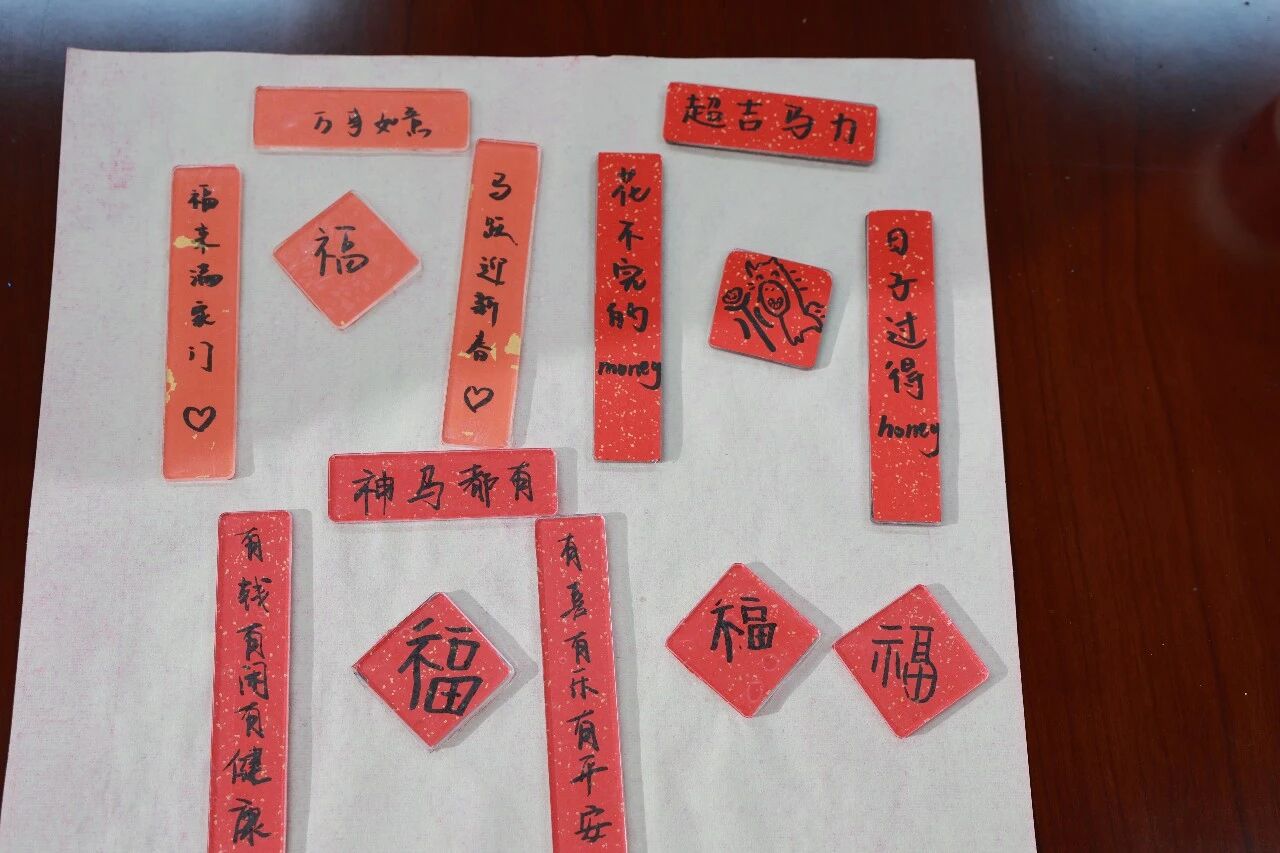 万事如意
福来满家门♡
福
马跃迎新春♡
超吉马力
花不完的money
日子过得honey
神马都有
有钱有闲有健康
福
有喜有乐有平安
福
福